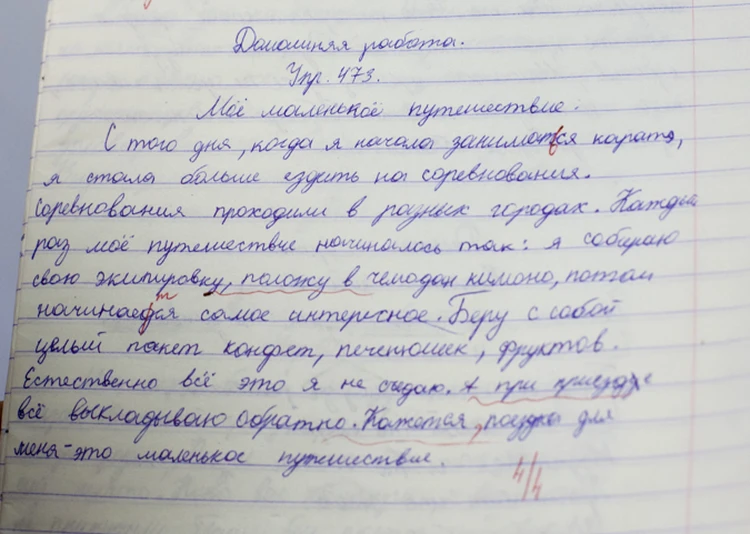 Домашняя работа.
Упр. 473.
Моё маленькое путешествие.
С того дня, когда я начала заниматься каратэ,
я стала больше ездить на соревнования.
Соревнования проходили в разных городах. Каждый
раз моё путешествие начиналось так: я собираю
свою экипировку, положу в чемодан кимоно, потом
начинается самое интересное. Беру с собой
целый пакет конфет, печенюшек, фруктов.
Естественно всё это я не съедаю. А при приезде
всё выкладываю обратно. Кажется, поездка для
меня - это маленькое путешествие.
4/4